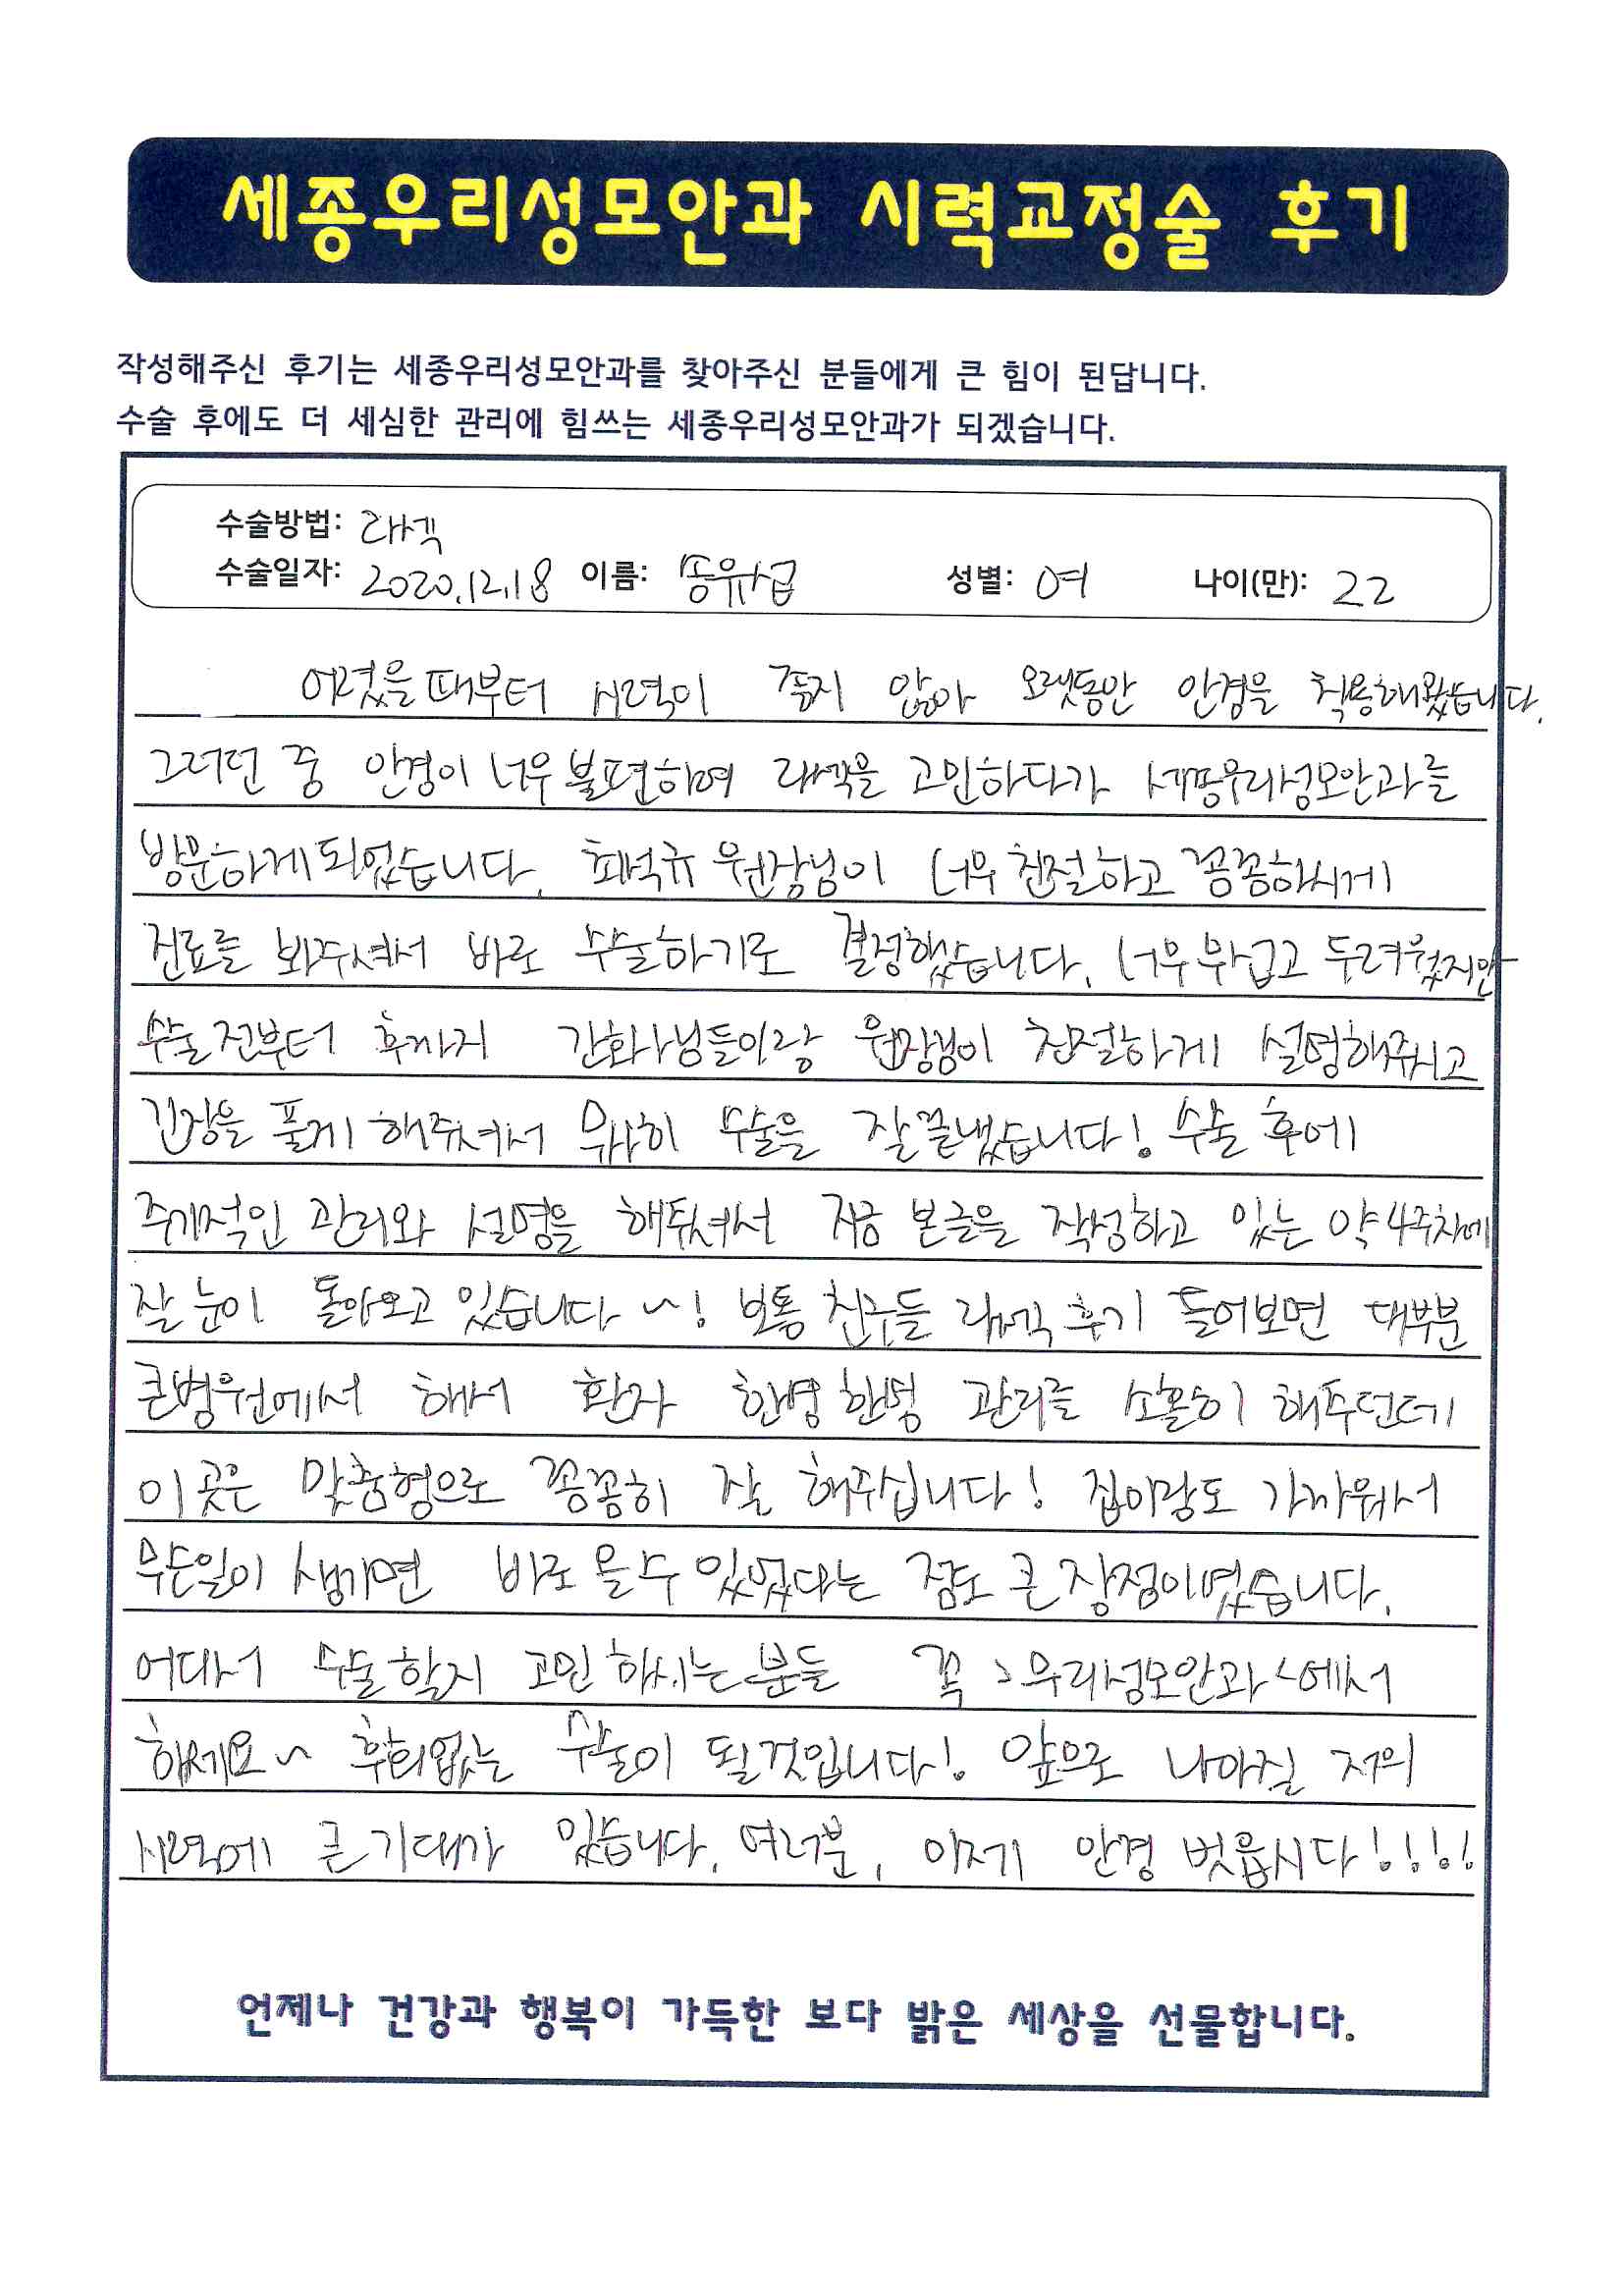 세종우리성모안과 시력교정술 후기
작성해주신 후기는 세종우리성모안과를 찾아주신 분들에게 큰 힘이 된답니다.
수술 후에도 더 세심한 관리에 힘쓰는 세종우리성모안과가 되겠습니다.
수술방법: 라섹
수술일자: 2020.12.18 이름: 성별: 여 나이(만): 22
어렸을때부터 시력이 좋지 않아 오랫동안 안경을 착용해왔습니다.
그러던 중 안경이 너무 불편하여 라섹을 고민하다가 세종우리성모안과를
방문하게되었습니다. 최석규 원장님이 너무 친절하고 꼼꼼하시게
진료를 봐주셔서 바로 수술하기로 결정했습니다. 너무 무섭고 두려웠지만
수술전부터 후까지 간호사님들이랑 원장님이 친절하게 설명해주시고
긴장을 풀게 해주셔서 무사히 수술을 잘끝냈습니다! 수술 후에
주기적인 관리와 설명을 해주셔서 지금 본글을 작성하고 있는 약 4주차에
잘 눈이 돌아오고 있습니다~! 보통 친구들 라섹 후기 들어보면 대부분
큰병원에서 해서 환자 한명 한명 관리를 소홀히 해주던데
이곳은 맞춤형으로 꼼꼼히 잘 해주십니다! 집이랑도 가까워서
무슨일이 생기면 바로 올수 있었다는 점도 큰 장점이였습니다.
어디서 수술할지 고민 하시는분들 꼭 >우리성모안과<에서
하세요~ 후회없는 수술이 될것입니다! 앞으로 나아질 저의
시력에 큰 기대가 있습니다. 여러분, 이제 안경 벗읍시다!!!!
언제나 건강과 행복이 가득한 보다 밝은 세상을 선물합니다.